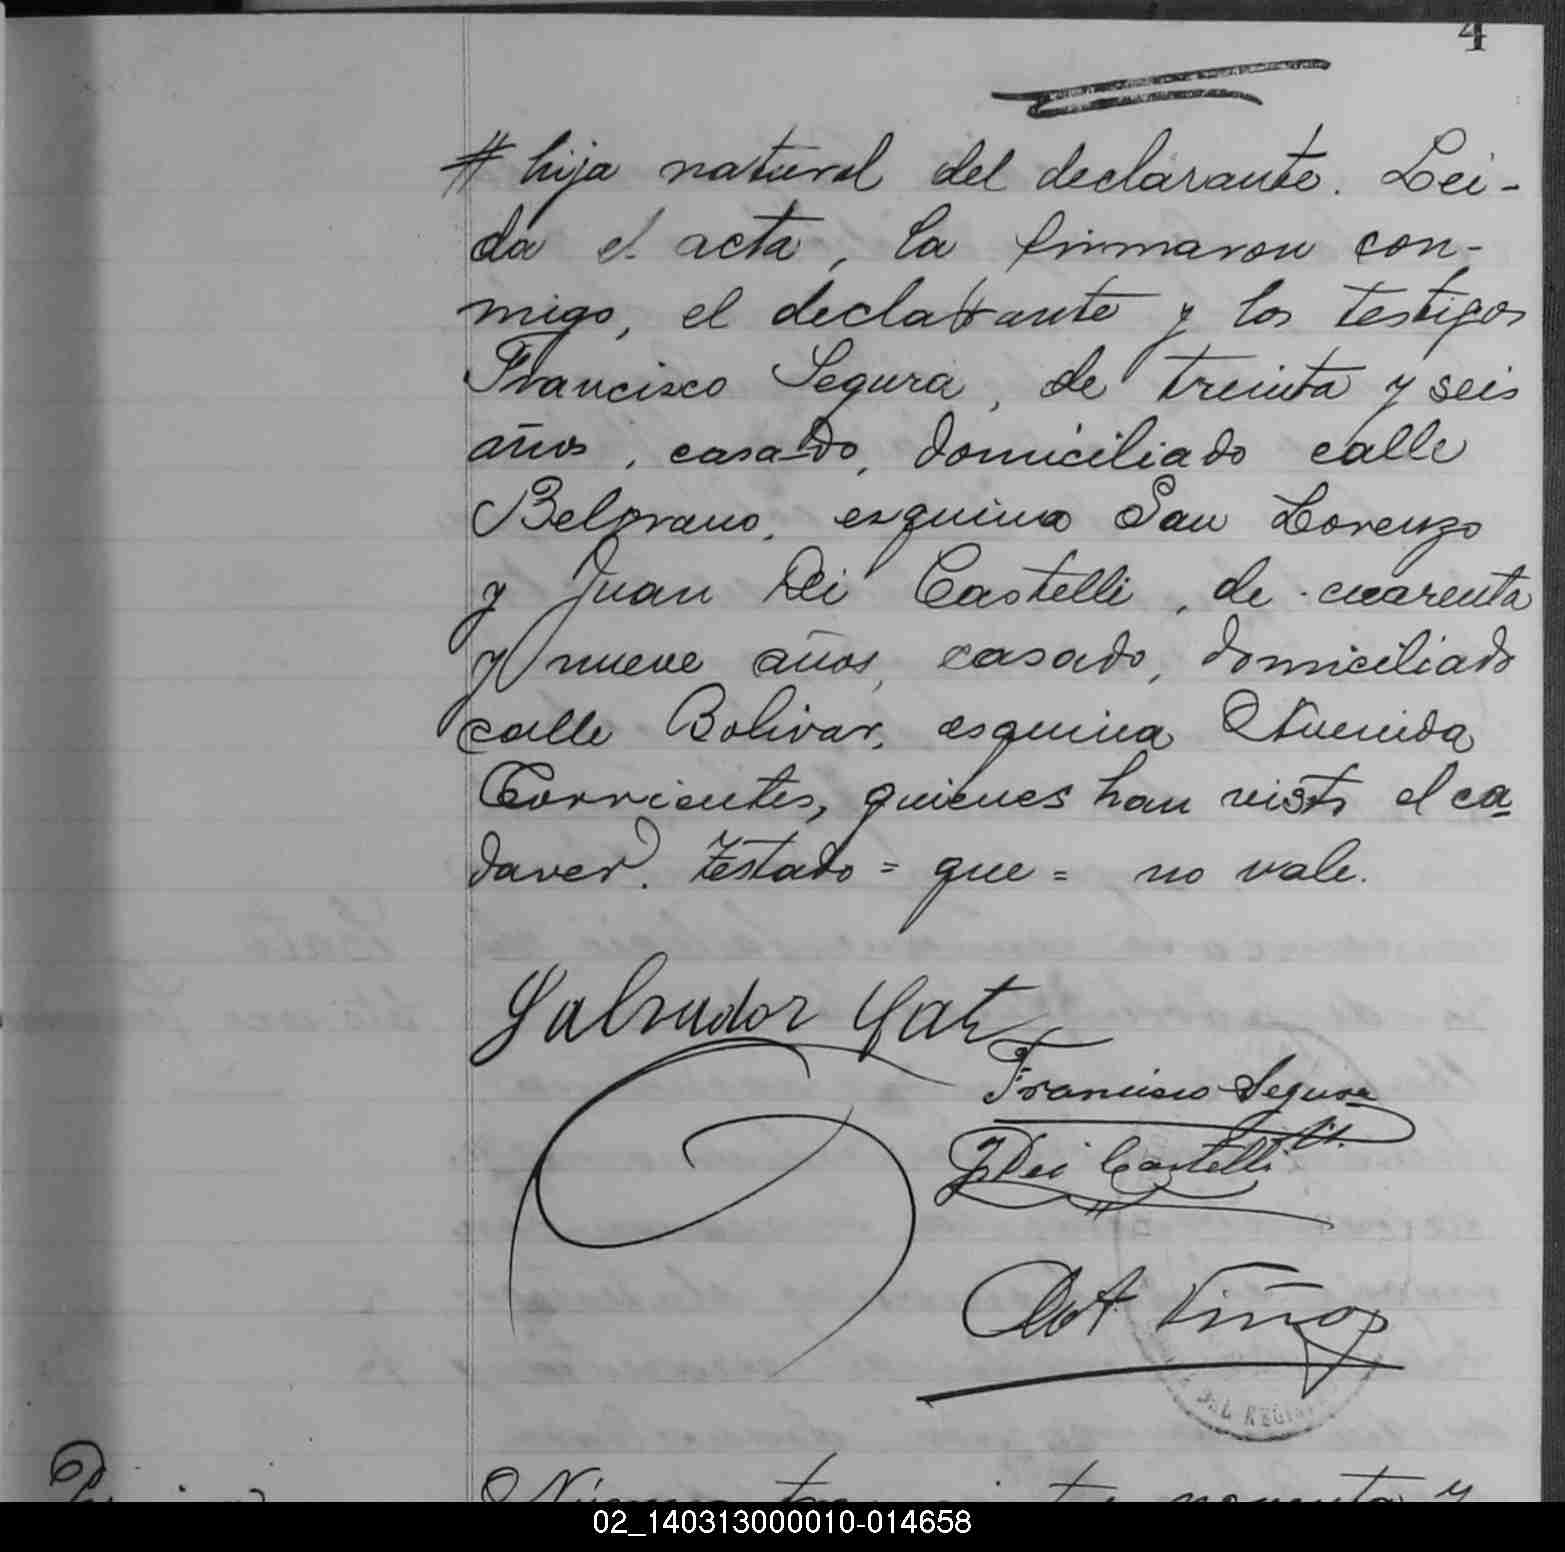 4
# hija natural del declarante. Lei-
da el acta, la firmaron con-
migo, el declarante y los testigos
Francisco Segura, de treinta y seis
años, casado, domiciliado calle
Belgrano, esquina San Lorenzo
y Juan Dei Castelli, de cuarenta
y nueve años, casado, domiciliado
calle Bolivar, esquina Avenida
Corrientes, quienes han visto el ca-
daver. Testado = que = no vale.
Salvador
Francisco Segura
J Dei Castelli
Viños
DEL REGI
Número y
02_140313000010-014658